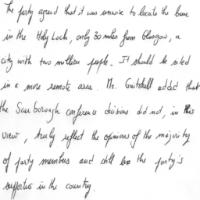 The party agreed that it was unwise to locate the base
in the Holy Loch, only 30 miles from Glasgow, a
city with two million people. It should be sited
in a more remote area. Mr. Gaitskell added that
the Scarborough conference decisions did not, in this
view, truly reflect the opinions of the majority
of party members and still less the party's
supporters in the country